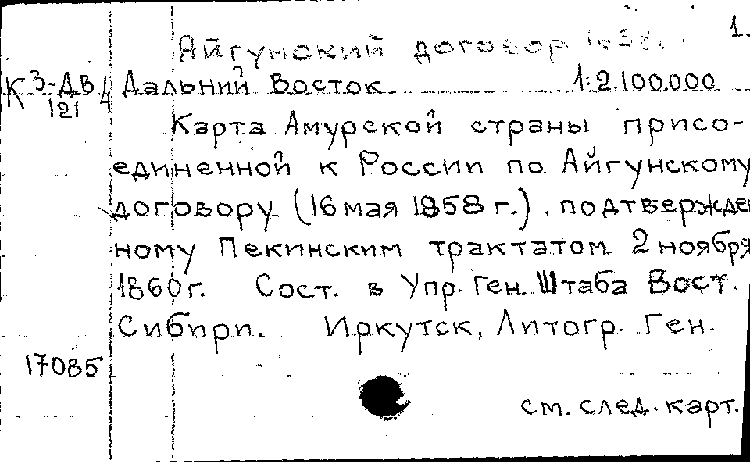 1.
Айгунский договор 1858г.
К 3-ДВ/121 Дальний Восток 1:2.100.000
Карта Амурской страны присо-
единенной к России по Айгунскому
договору (16 мая 1858 г.), подтвержден
ному Пекинским трактатом 2 ноября
1860г. Сост. в Упр. Ген. Штаба Вост.
Сибири. Иркутск, Литогр. Ген.
17085
см. след. карт.